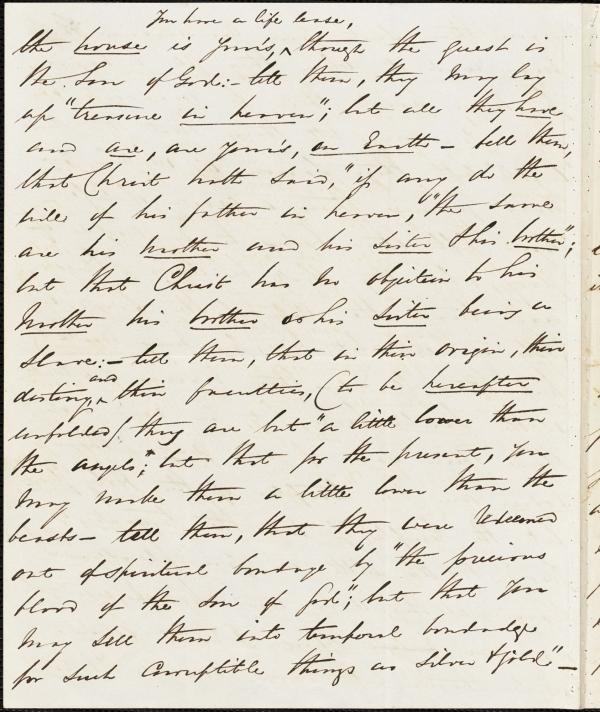 You have a life lease,
the house is yours, ^ though the guest is
the Son of God:- tell them, they may lay
up "treasure in heaven"; but all they have
and are, are yours, on Earth - tell them,
that Christ hath said, "if any do the
will of his father in heaven, "the same
are his mother and his sister & his brother";
but that Christ has no objection to his
mother his brother or his sister being a
slave:- tell them, that in their origin, their
destiny, ^ and their faculties, (to be hereafter
unfolded) they are but "a little lower than
the angels"; but that for the present, you
may make them a little lower than the
beasts - tell them, that they were redeemed
out of spiritual bondage by "the precious
blood of the Son of God"; but that you
may sell them into temporal bondage
for such corruptible things as silver & gold" -